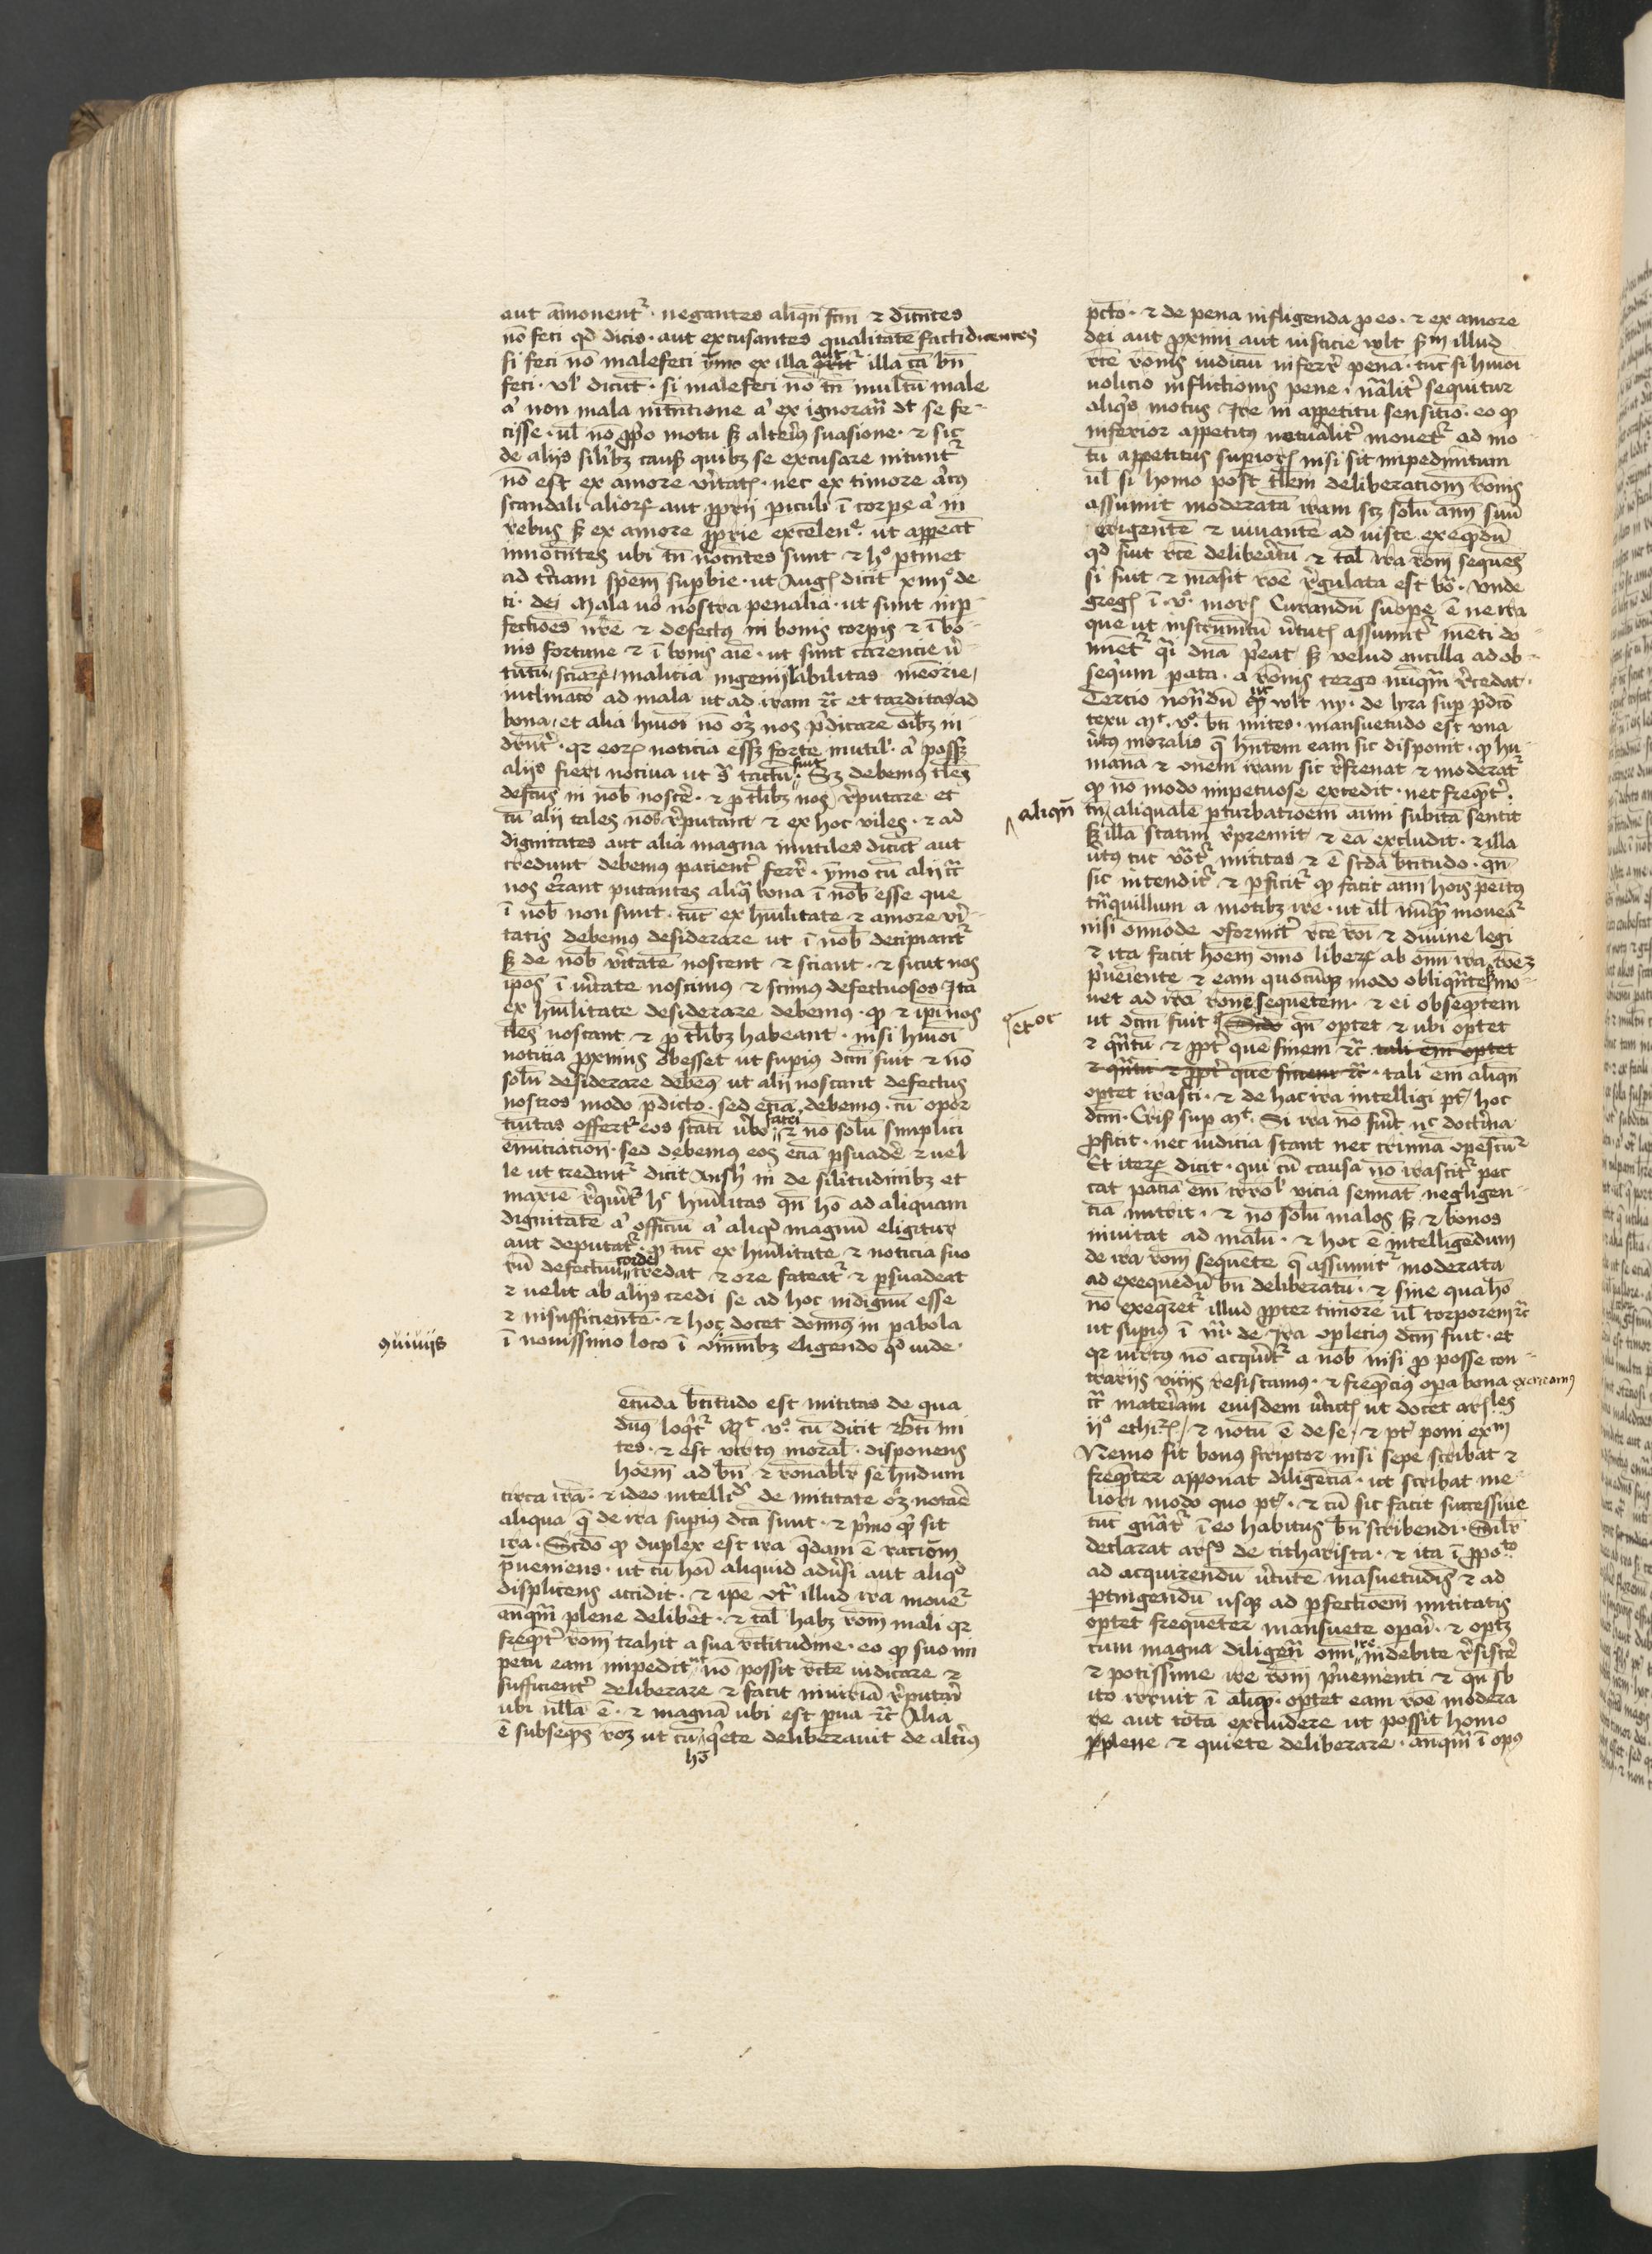 aut āmonent᷑ · negantes aliqn̄ fcm̄ ⁊ dicn̄tes
nō feci qd̄ dicis · aut excusantes qualitatē facti dicentes
si feci nō malefeci ymo ex illa aut illa cā bn̄
feci · ul̕ dicūt · si malefeci nō tn̄ multū male
a̕ non mala intn̄tione a̕ ex ignoran̄ dt̄ se fe-
cisse · ul̕ nō pp̄o motu sꝫ alteriꝰ suasione · ⁊ sic
de aliis silibꝫ causis quibꝫ se excusare nitunt᷑
nō est ex amore vĩtatis · nec ex timore
scandali aliorꝝ aut pp̄rij piculi ī corpe a̕ in
rebus sꝫ ex amore pp̄rie excelen̄ · ut appeāt
innocn̄tes ubi tn̄ nocn̄tes sunt ⁊ h° ptinet
ad tc̄iam spēm supbie · ut Augꝰ dicit xiiij° de
ci · dei Mala uō nostra penalia · ut sunt inp-
fectiões nr̄e ⁊ defectꝰ in bonis corpis ⁊ ī bo-
nis fortune ⁊ ī bonis aīe · ut sunt carencie v̄-
tutū, sciarꝝ, malicia ingenij, labilitas meōrie,
inclinato ad mala ut ad iram ⁊c̄ et tarditas ad
bona, et alia hm̄oi nō oꝫ nos p̄dicare oībꝫ in-
drn̄t᷑ · qr eorꝝ noticia essꝫ forte inutil̕ · a̕ possꝫ
aliis fieri nociua ut s̄ tactū fuit · Sꝫ debemꝰ tles̄
defctus̄ in nob̄ nosce̕ · ⁊ p tlibꝫ nos reputare et
cū alij tales nos reputant ⁊ ex hoc viles · ⁊ ad
dignitates aut alia magna inutiles dicūt aut
credunt debemus pacient᷑ ferr̄ · ymo cū alij
nos errant putantes aliq̄ bona ī nob̄ esse que
ī nob̄ non sunt · tūc ex hūilitate ⁊ amore vi-
tatis debemus desiderare ut ī nob̄ decipiant᷑
sꝫ de nob̄ vĩtatē noscent ⁊ sciant · ⁊ sicut nos
ipōs ī vĩtate noscimus ⁊ scimꝰ defectuosos Ita
ex hūilitate desiderare debemus · qꝫ ⁊ ip̄i nos
tles̄ noscant ⁊ p tlibꝫ habeant · nisi hm̄oi
noticia pximis obesset ut supius dcm̄ fuit ⁊ nō
solū desiderare debeꝰ ut alij noscant defectus
nostros modo p̄dicto · sed eciā debemus · cū opor
tūitas offert᷑ eos fateri ⁊ nō solū simplici
enūciation̄ · sed debemus eos eciā psuadē ⁊ uel
le ut credant᷑ dicit Ansh̕ in de silitudinibꝫ et
maxīe reqr̄it᷑ hꝰ hūilitas qn̄ hō ad aliquam
dignitatē a̕ officiū a̕ aliqd̕ magnū eligitur
aut deputat᷑ · qꝫ tūc ex hūilitate ⁊ noticia suo
rū defectuū corde credat ⁊ ore fateat᷑ ⁊ psuadeat
⁊ uelit ab aliis credi se ad hoc indignū esse
⁊ insufficientē · ⁊ hoc docet domīus in pabola
ī nouissimo loco ī eligendo qd̕ uide ·
ꝯuiuijs
ecūda bt̄itudo est mititas de qua
dn̄us loqt᷑ mt̄ · v° · cū dicit Bt̄i mi
tes · ⁊ est virtꝰ moral̕ · disponens
hoēm ad bn̄ ⁊ rōnabl̕r se hn̄dum
circa irā · ⁊ ideo intelli de mititate oꝫ notae̕
aliqua q̄ de ira supius dcā sunt · ⁊ p̄mo qd̕ sit
ira · Scdō qꝫ duplex est ira qdam ē racōm
p̄ueniens · ut cū hoī aliquid adũsi aut aliqd̕
displicens accidit · ⁊ ipē ut᷑ illud ira mouet᷑
anq̄m plene delibēt · ⁊ tal̕ habꝫ rōm mali qr
freqn̄t᷑ rōm trahit a sua rctitudine · eo qꝫ suo im
petu eam impedit ut nō possit rcte iudicare ⁊
sufficient᷑ deliberare ⁊ facit iniuriā reputar̄
ubi nulla ē · ⁊ magnā ubi est pua ⁊c̄ Alia
ē subseqn̄s rōꝫ ut cū hō qete deliberauit de alt̄iꝰ
pcto · ⁊ de pena infligenda p eo · ⁊ ex amore
dei aut pximi aut iusticie wlt sm̄ illud
rcte rōnis iudiciū inferr̄ penā · tūc si hm̄oi
uolicio inflictionis pene · nālit᷑ sequitur
aliqs motus Ire in appetitu sensitīo · eo qꝫ
inferior appetitus natualit᷑ mouet᷑ ad mo-
tū appetitus superiorꝭ nisi sit impedimtum
ul̕ si homo post tlem̄ deliberatiom rōnis
assumit moderatā iram scꝫ solū anī suū
erigentē ⁊ iuuantē ad iuste exeqn̄dū
qd̕ fuit rcte delibeatū · ⁊ tal̕ ira rōm sequens
si fuit ⁊ māsit rōe regulata est bō · Vnde
gregꝰ ī · v° · morꝭ Curandū sūope ē ne ira
que ut instrumtū v̄tutꝭ assumit᷑ mēti do-
minet᷑ q̄i dn̄a p̄eat sꝫ velud ancilla ad ob-
seqium pata · a rōnis tergo nūq̄m recedat ·
Tercio notādū ut wlt ny · de lyra sup p̄dctō
textu mt̄ · v° · bn̄ mites · mansuetudo est una
v̄tus moralis q̄ hn̄tem eam sic disponit · qꝫ hu-
mana ⁊ omnem iram sic refrenat ⁊ moderat᷑
qꝫ nō modo impetuose excedit · nec freqn̄t᷑ ·
aliqn̄ tn̄ aliqualē pturbatiōem animi subitā sentit
sꝫ illā statim repremit ⁊ eā excludit · ⁊ illa
v̄tus tūc vocat᷑ mititas ⁊ ē scdā bt̄itudo · qn̄
sic intendit᷑ ⁊ pficit᷑ qꝫ facit anī hoīs penitꝰ
tn̄quillum a motibꝫ ire · ut ill̕ nūq̄ moueat᷑
nisi omnīode ꝯformit᷑ rcte rōi ⁊ diuine legi
⁊ ita facit hoēm omō liberꝝ ab omni ira rōeꝫ
p̄ueiente ⁊ eam quocūqꝫ modo obliqn̄te ⁊ mo-
uet ad irā rōnē sequentem · ⁊ ei obseqn̄tem
ut dcm̄ fuit Scdo qn̄ optet ⁊ ubi optet
⁊ qn̄tū ⁊ ppt̄ quē finem ⁊c̄ tali em̄ optet
⁊ qn̄tū ⁊ ppt̄ quē finem ⁊c̄ · tali em̄ aliqn̄
optet irasci · ⁊ de hac ira intelligi pt̄ hoc
dcm̄ · Cris̕ sup mt̄ · Si ira nō fuit̕ nc̄ doctrina
pficit · nec iudicia stant nec crimīa ꝯpescūt᷑
Et iterꝝ dicit · qui cū causa nō irascit᷑ pec
cat pacīa em̄ irrōl̕ vicia seminat negligen-
ciā nutrit · ⁊ nō solū malos sꝫ ⁊ bonos
inuitat ad malū · ⁊ hoc ē intelligēdum
de ira rōm sequente q̄ assumit᷑ moderata
ad exequēdū bn̄ deliberatū · ⁊ sine qua hō
nō exeqret᷑ illud ppter timorē ul̕ torporem ⁊c̄
ut supius ī m̄ · de Ira ꝯplecius dcm̄ fuit · et
qr uirtus nō acqrit᷑ a nob̄ nisi p posse con-
trariis viciis resistamus · ⁊ freqn̄ciꝰ opa bona exerceamꝰ
materiam eiusdem v̄tutꝭ ut docet ars̄les
ij° ethicꝝ, ⁊ notū ē de se, ⁊ pt̄ poni exm̄
Nemo fit bonus scriptor nisi sepe scribat ⁊
freqn̄ter apponat diligēciā · ut scribat me-
liori modo quo pt̄ · ⁊ cū sic facit successiue
tūc gn̄at᷑ ī eo habitus bn̄ scribendi · Silr̄
declarat ars̄ de citharista · ⁊ ita ī pp̄o°
ad acquirendū v̄tutē māsuetudīs ⁊ ad
ptingendū usqꝫ ad pfectiōem mititatis
optet frequenter mansuete opari · ⁊ optꝫ
cum magna diligen̄ omī ire indebite resiste̕
⁊ potissime ire rōm p̄uenienti ⁊ qn̄ sb
ito irruit ī aliqꝫ · optet eam rōe modera
re aut totā excludere ut possit homo
pplene ⁊ quiete deliberare · anq̄m ī opꝰ